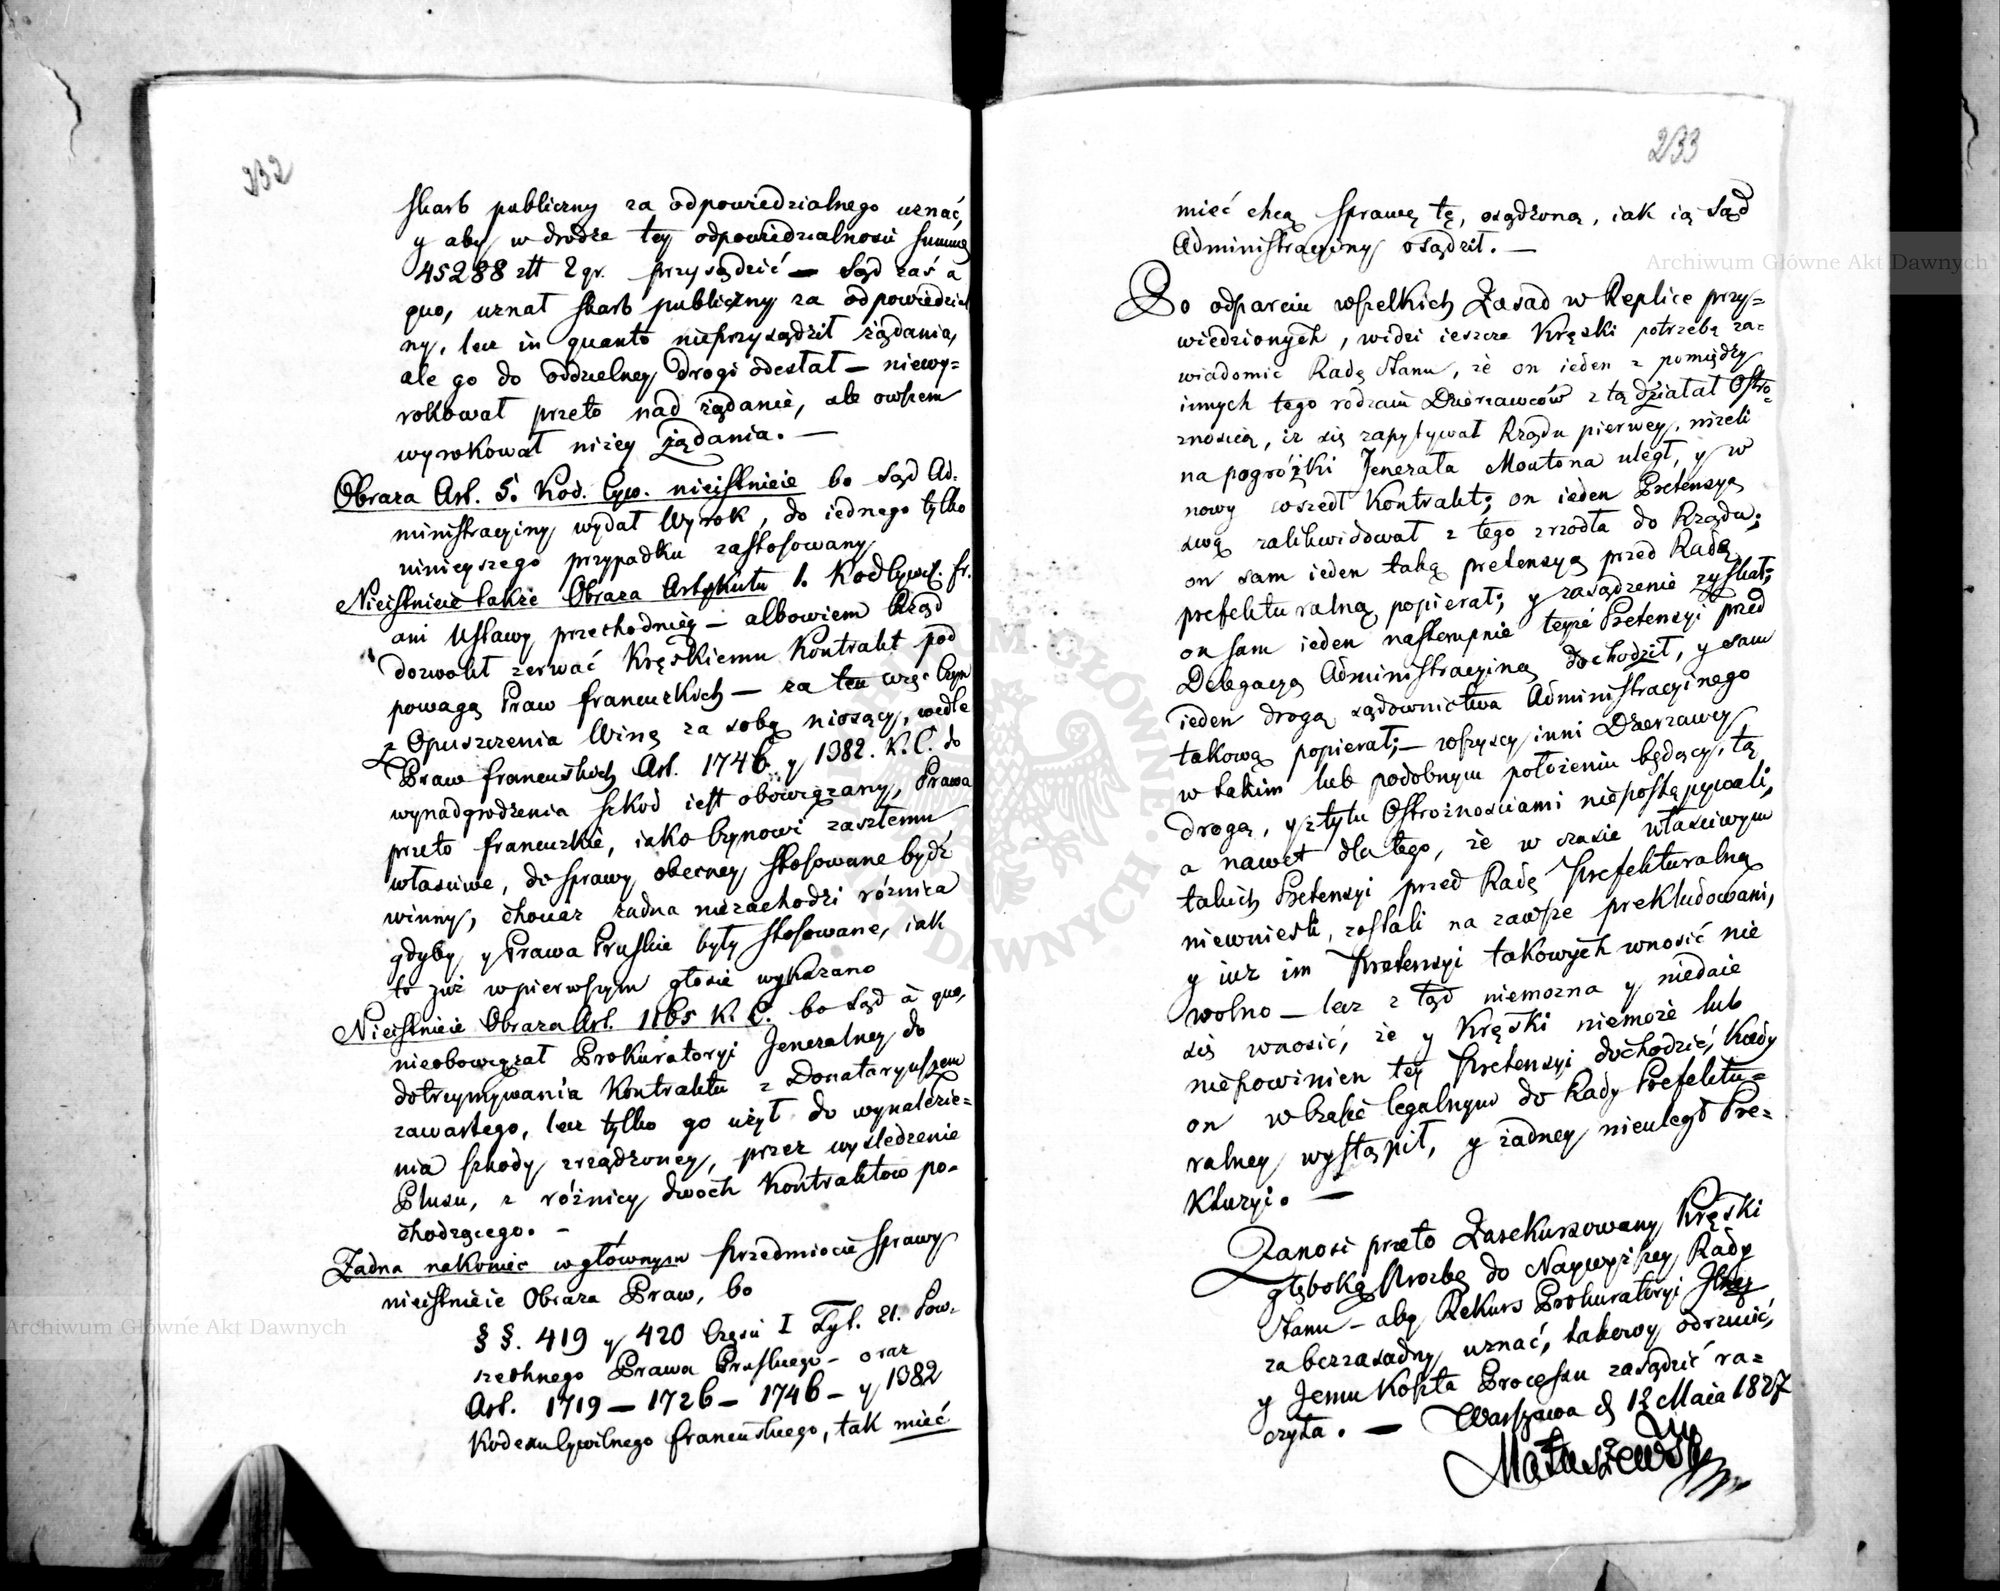 232
skarb publiczny za odpowiedzialnego uznać,
y aby w drodze tey odpowiedzialności summę
45288 złt 2 gr. przysądzić — Sąd zaś a
quo, uznał skarb publiczny za odpowiedzial
ny, lecz in quanto nieprzysądził żądania,
ale go do oddzielney drogi odesłał — niewy=
rokował przeto nad żądanie, ale owszem
wyrokował niżey żądania. —
Obraza Art. 5. Kod. Cyw. nieistnieie bo Sąd Ad=
ministracyiny wydał Wyrok, do iednego tylko
ninieyszego przypadku zastosowany
Nieistnieie także Obraza Artykułu 1. Kod Cywil. fr.
ani Ustawy przechodniey — albowiem Rząd
dozwolił zerwać Kręskiemu Kontrakt pod
powagą Praw francuzkich — za ten więc Czyn
z Opuszczenia Winę za sobą niosący, wedle
Praw francuskich Art. 1746 y 1382. K. C. do
wynadgrodzenia szkod iest obowiązany, Prawa
przeto francuzkie, iako Czynowi zaszłemu
właściwe, do sprawy obecney stosowane bydź
winny, chociaz żadna niezachodzi różnica
gdyby y Prawa Pruskie były stosowane, iak
to już w pierwszym głosie wykazano
Nieistnieie Obraza Art. 1165 K. C. bo Sąd à quo,
nieobowiązał Prokuratoryi Jeneralney do
dotrzymywania Kontraktu z Donataryuszem
zawartego, lecz tylko go użył do wynalezie=
nia szkody zrządzoney, przez wyśledzenie
Plusu, z różnicy dwoch Kontraktow po=
chodzącego. —
Żadna nakoniec w głównym Przedmiocie sprawy
nieistnieie Obraza Praw, bo
§ §. 419 y 420 Części I Tyt. 21. Pow=
szechnego Prawa Pruskiego — oraz
Art. 1719 — 1726 — 1746 — y 1382
Kodexu Cywilnego francuskiego, tak mieć
233
mieć chcą sprawę tę, osądzoną, iak ią Sąd
Administracyiny osądził. —
Do odparcia wszelkich Zasad w Replice przy=
wiedzionych, widzi ieszcze Kręski potrzebę za=
wiadomić Radę Stanu, że on ieden z pomiędzy
innych tego rodzaiu Dzierzawców z tą działał Ostro=
znością, iż się zapytywał Rządu pierwey, niżeli
na pogróżki Jenerała Moutona uległ, y w
nowy wszedł Kontrakt; on ieden Pretensyą
swą zalikwidował z tego zrzodła do Rządu;
on sam ieden taką pretensyą przed Radą
prefekturalną popierał; y zasądzenie zyskał;
on sam ieden następnie teyże Pretensyi przed
Delegacyą Administracyiną dochodził, y sam
ieden drogą sądownictwa Administracyinego
takową popierał; — wszyscy inni Dzierzawcy,
w takim lub podobnym położeniu będący, tą
drogą, y z tylu Ostrożnościami niepostąpywali,
a nawet dla tego, że w czasie właściwym
takich Pretensyi przed Radę Prefekturalną
niewnieśli, zostali na zawsze prekludowani,
y iuz im Pretensyi takowych wnosić nie
wolno — lecz z tąd niemozna y niedaie
się wnosić, że y Kręski niemoże lub
niepowinien tey Pretensyi dochodzić, kiedy
on w Czasie legalnym do Rady Prefektu=
ralney wystąpił, y żadney nieuległ Pre=
kluzyi. —
Zanosi przeto Zarekursowany Kręski
głęboką Prozbę do Naywyższey Rady
Stanu — aby Rekurs Prokuratoryi
za bezzasadny uznać, takowy odrzucić,
y Jemu Koszta Procesu zasądzić ra=
czyła. — Warszawa d 12 Maia 1827
Matuszewski